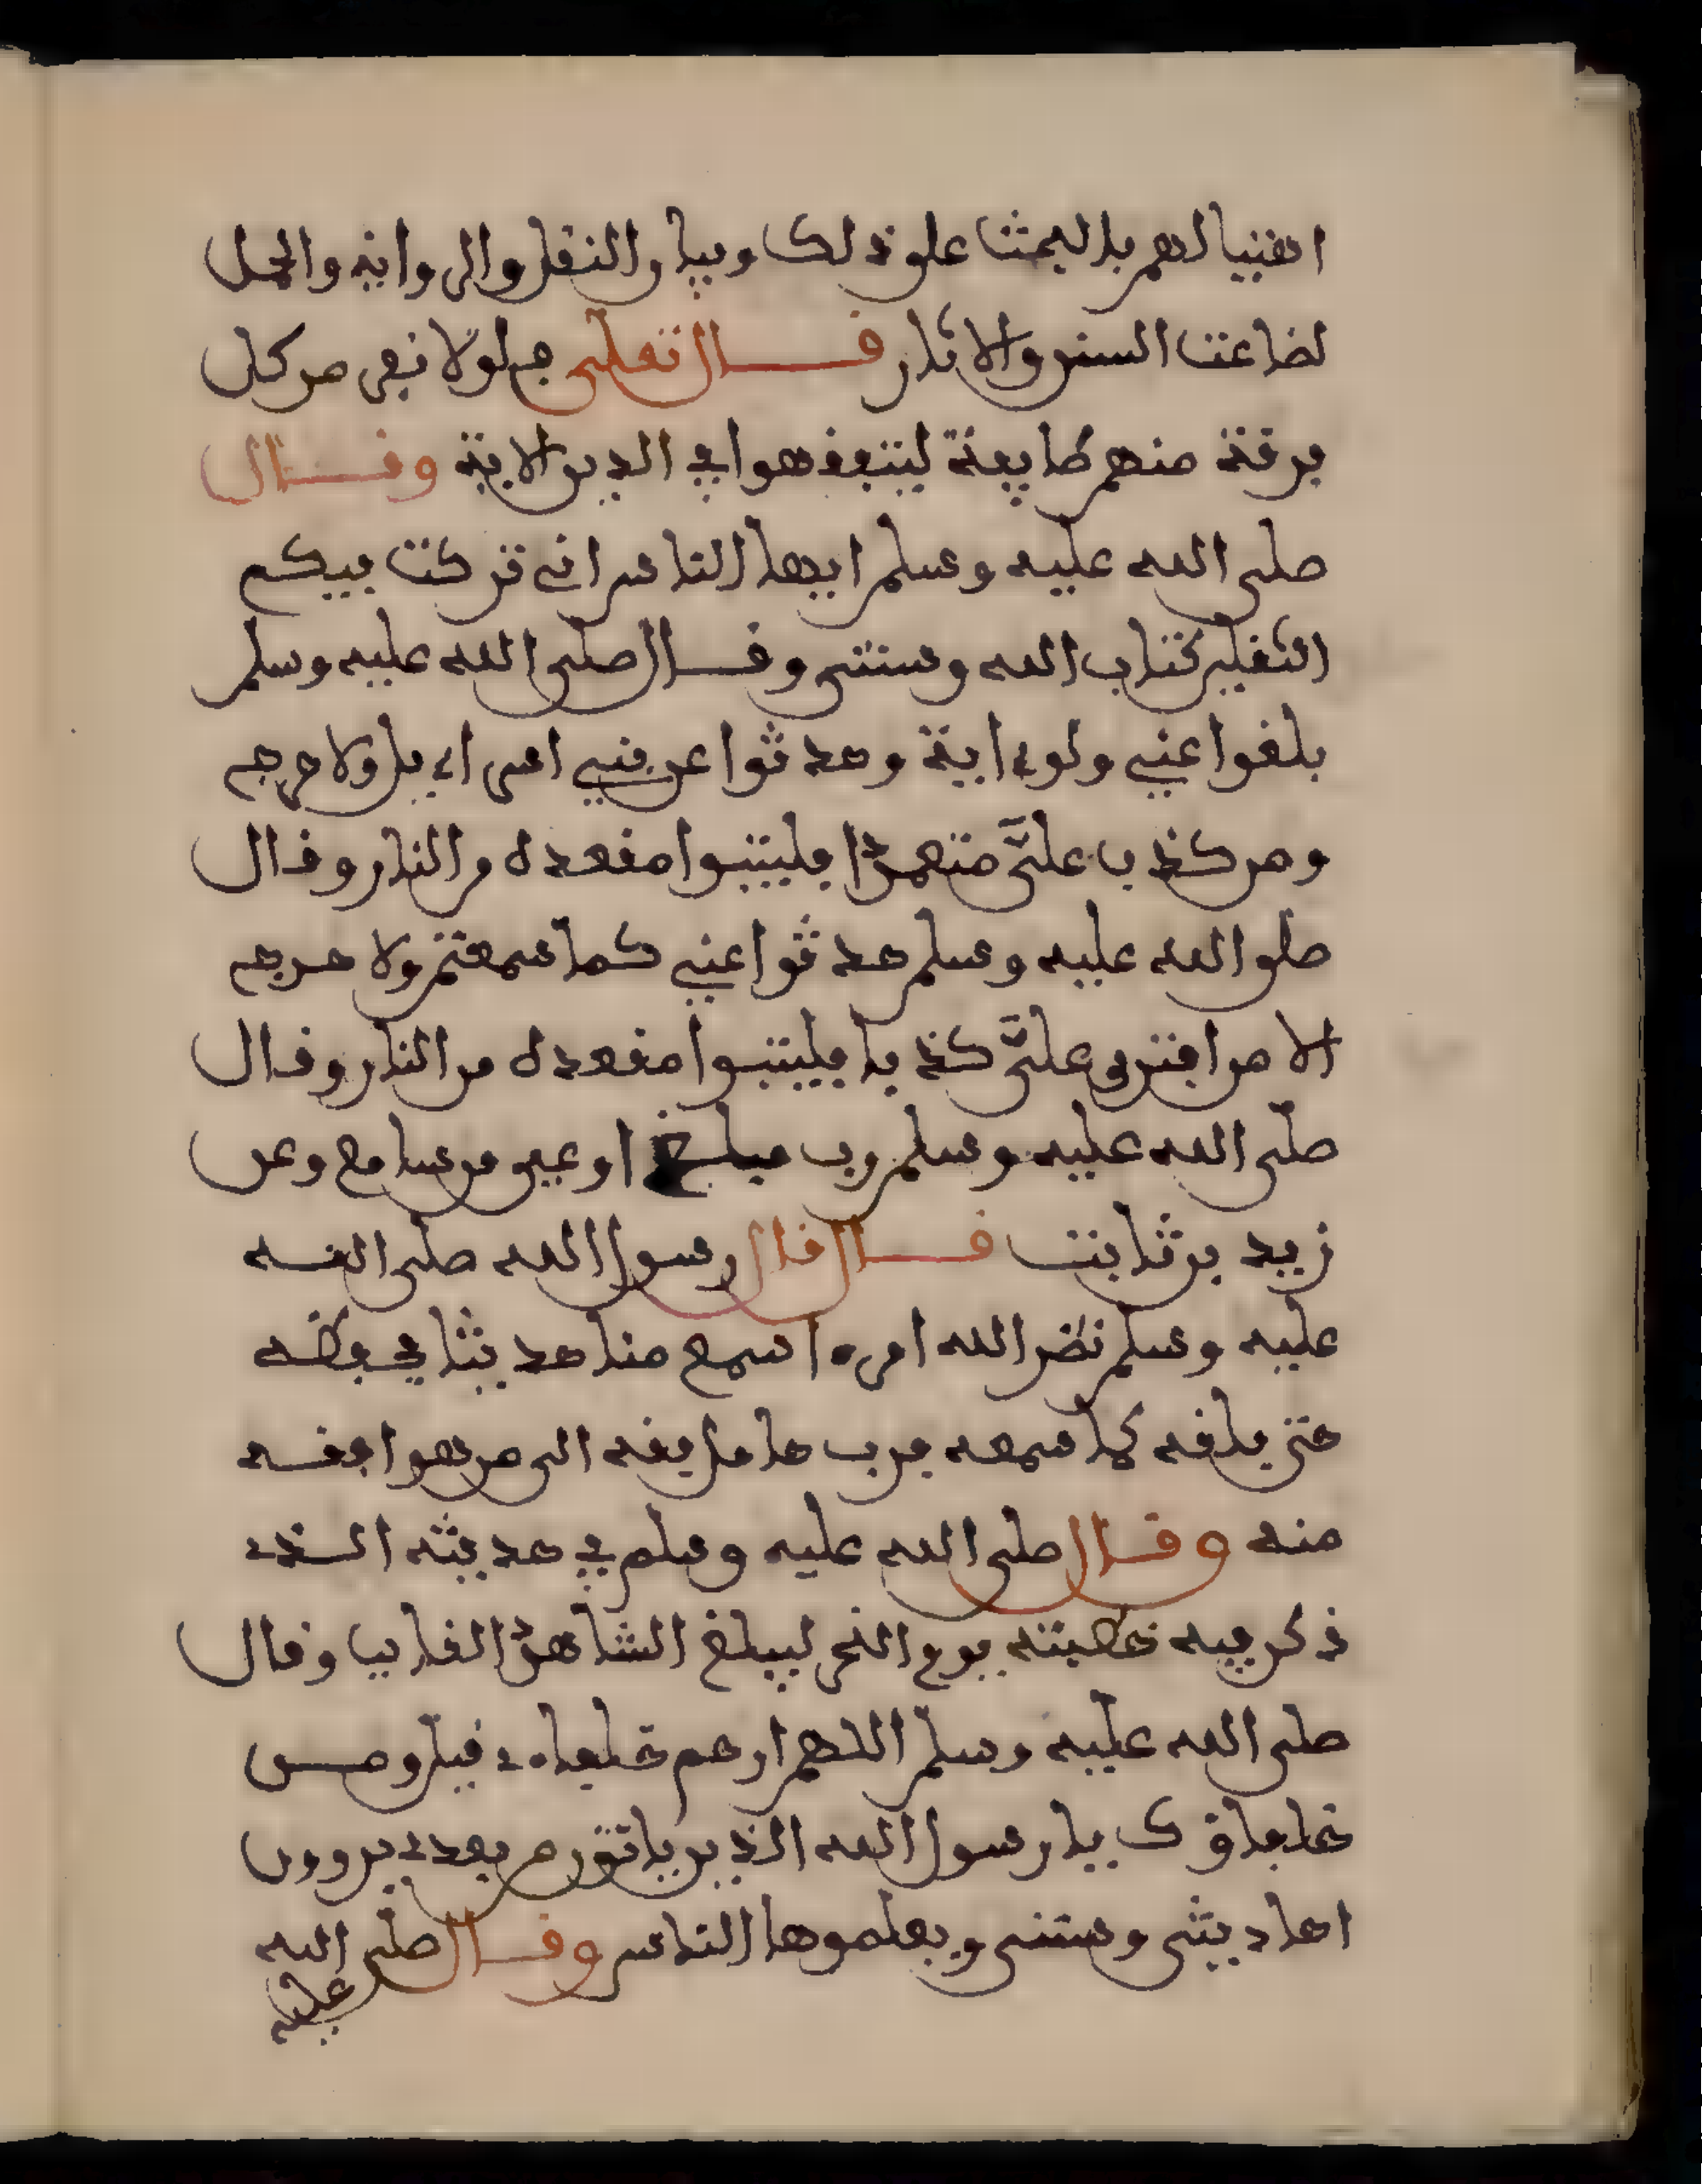 اعتنيا لهم بالبحث على ذلك وبيان النقل والرواية والحمل
لضاعت السنن والاثار قال تعلى فلولا نفر من كل
فرقة منهم طايفة ليتفقهوا في الدين الاية وقال
صلى الله عليه وسلم ايها الناس اني تركت فيكم
الثقلين كتاب الله وسنتي وقال صلى الله عليه وسلم
بلغوا عني ولو اية وحدثوا عن بني اسراءيل ولا حرج
ومن كذب علىَّ متعمدا فليتبوا مقعده من النار وقال
صلى الله عليه وسلم حدثوا عني كما سمعتم ولا حرج
الا من افترى علىَّ كذبا فليتبوا مقعده من النار وقال
صلى الله عليه وسلم رب مبلغ اوعى من سامع وعن
زيد بن ثابت قال قال رسول الله صلى الله
عليه وسلم نضر الله امرءا سمع منا حديثا فحفظه
حتى يبلغه كما سمعه فرب حامل فقه الى من هو افقه
منه وقال صلى الله عليه وسلم في حديثه الذي
ذكر فيه خطبته يوم النحر ليبلغ الشاهد الغايب وقال
صلى الله عليه وسلم اللهم ارحم خلفاءي قيل ومن
خلفاؤك يا رسول الله الذين ياتون من بعدي يروون
احاديثي وسنتي ويعلموها الناس وقال صلى الله
عليه